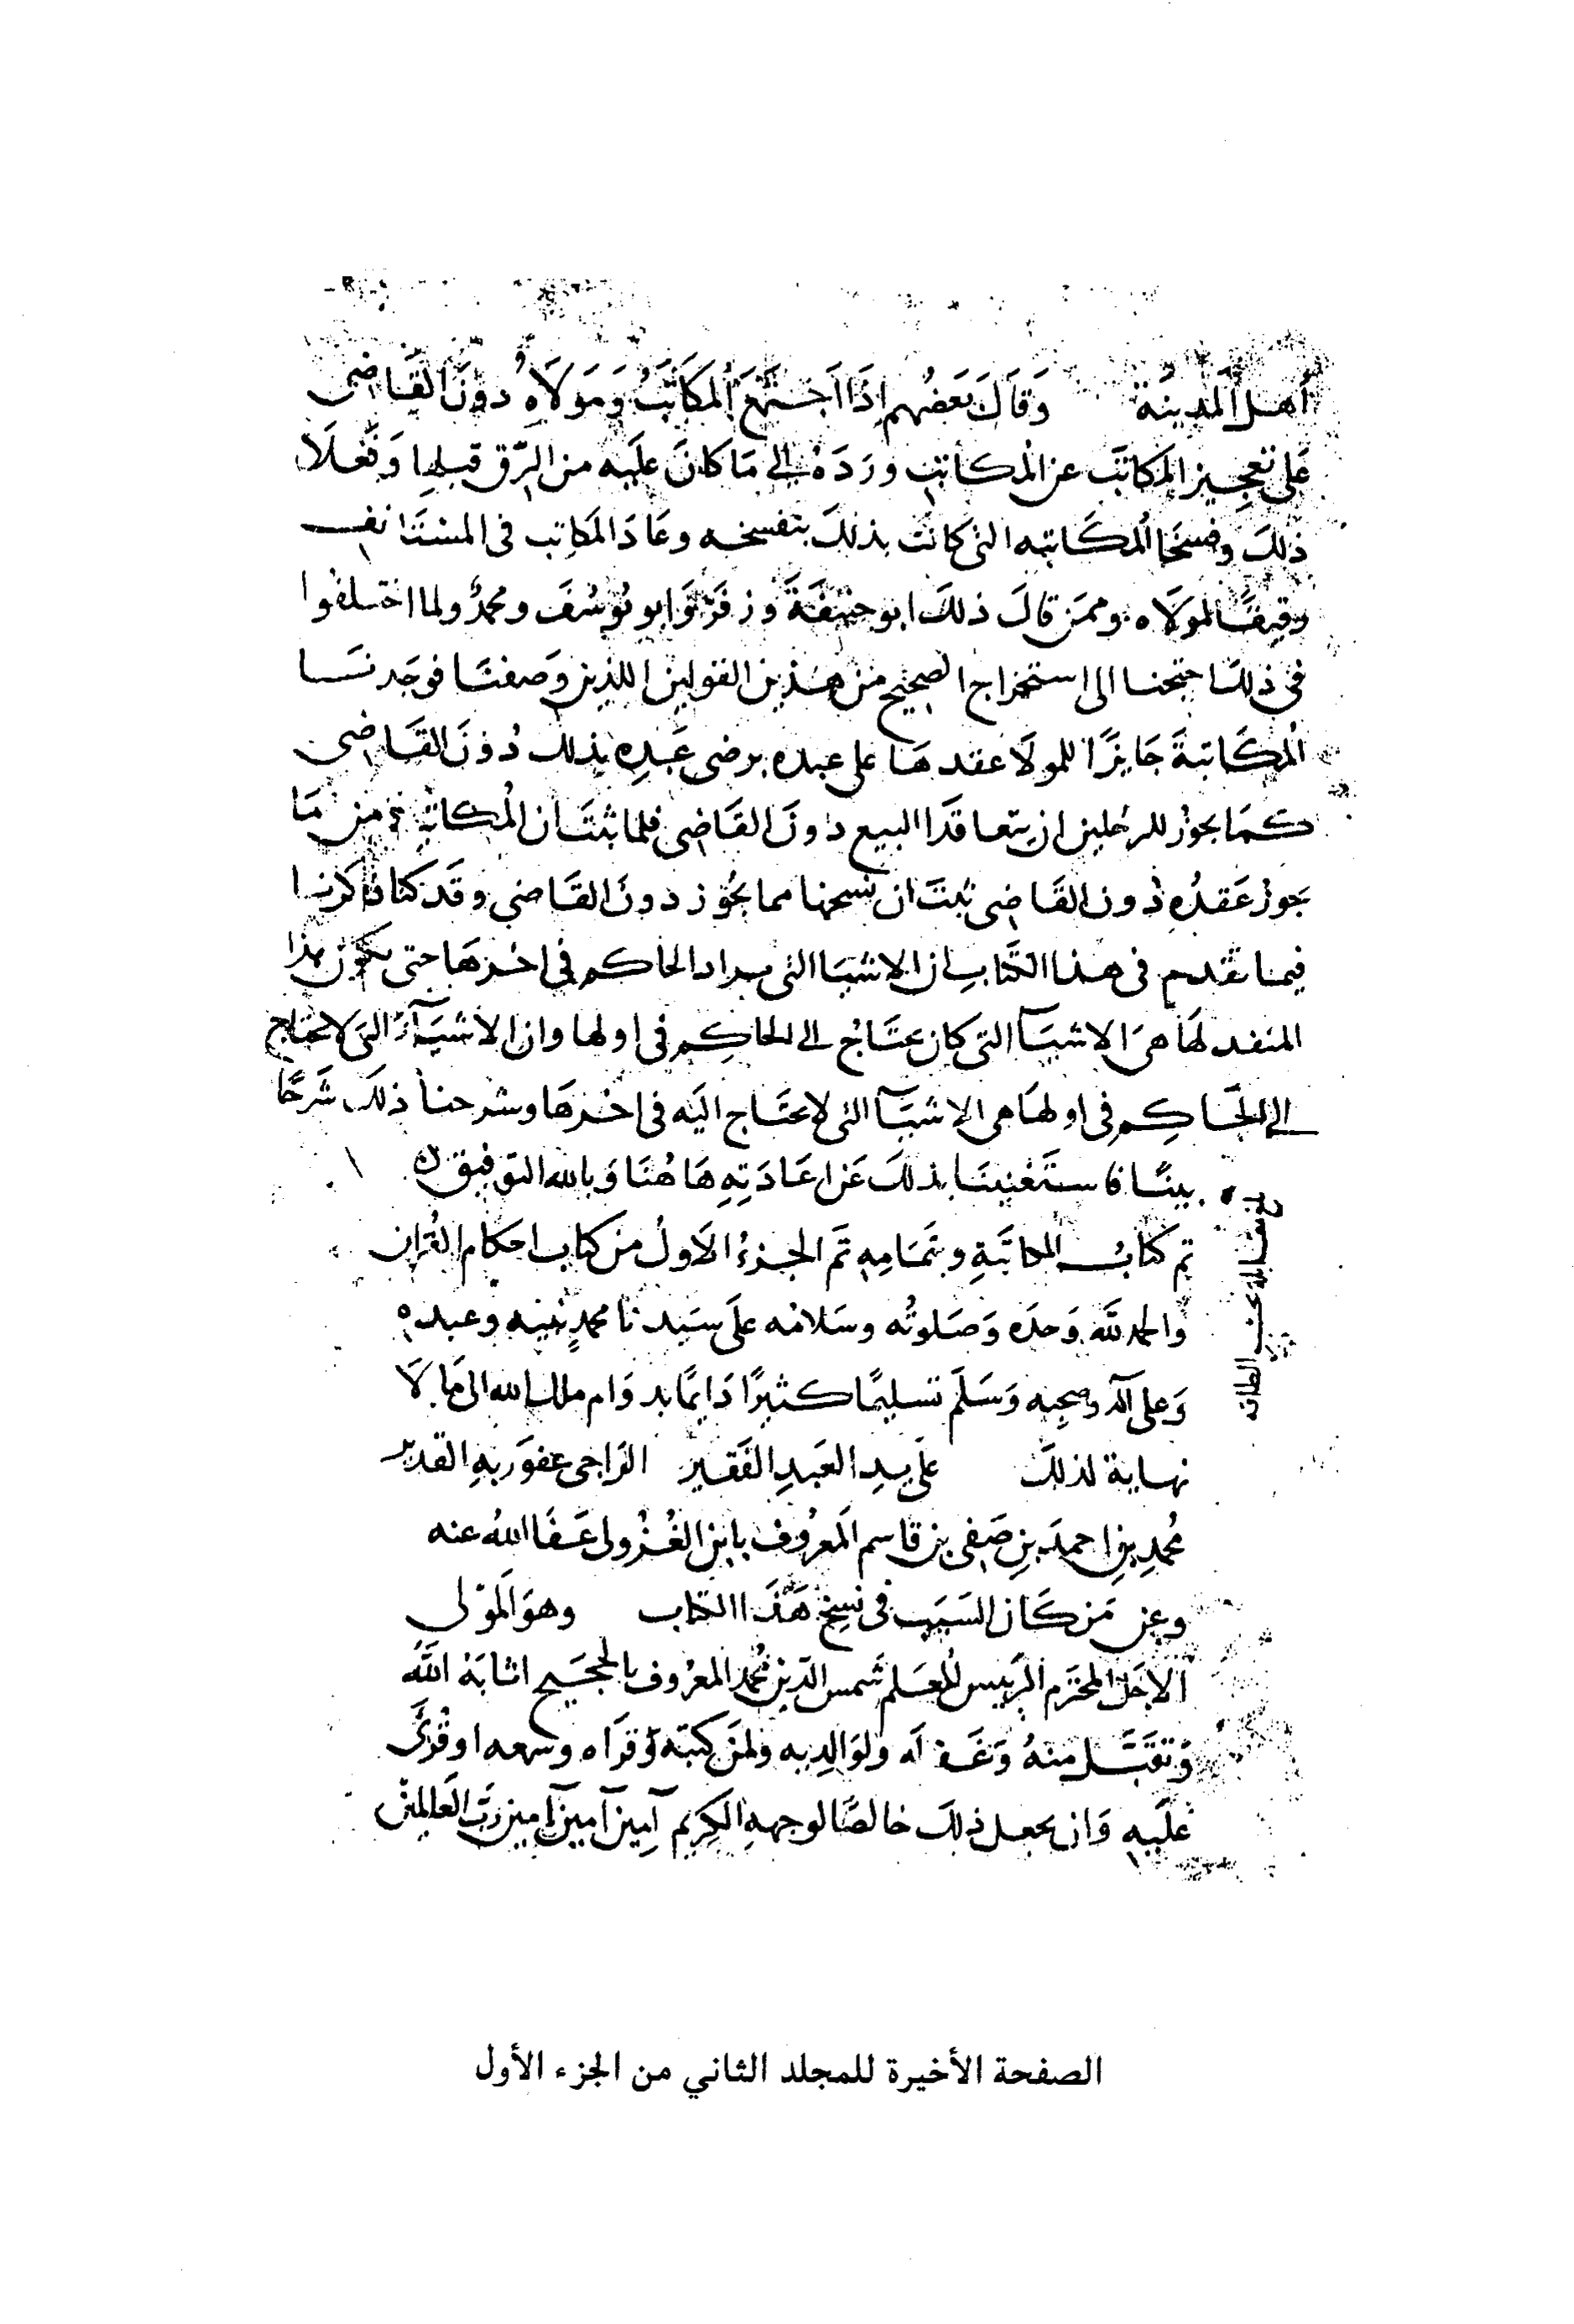 أهل المدينة وَقَالَ بَعضُهم إذَا اجتَمَعَ المكَاتَبُ وَمَولَاهِ دونَ القَاضى
عَلى تعجيز المكاتَب عن المكاتبه وردَه الى مَا كانَ عليه من الرّق قبلها وَفَعلَا
ذلكَ وفسخَا المكَاتبه التى كانت بذلكَ بتفسخه وعَادَ المكاتب فى المستَانف
رقيقًا لمولَاه وممَن قالَ ذلكَ ابو حنيفَةَ وزفَرُ وَابو يُوسُفَ ومحمدٌ ولما اختلفوا
فى ذلكَ احتجنا الى استخراج الصحيح من هذين القولين اللذين وَصفنَا فوَجَدنَا
المكَاتبةَ جَايزًا للمولَا عقدهَا على عبده برضى عَبدِه بذلك دُونَ القَاضى
كمَا يجوزُ للرجلين ان يتعاقدَا البيع دونَ القَاضى فلما ثبتَ ان المكاتبة من مَا
يجوز عَقدُه دُون القَاضى ثبتَ ان فسخها مما يجُوز دونَ القَاضي وقَد كنا ذكرنا
فيما تقدم فى هذا الكتَابِ ان الاشيَا التى يراد الحاكم فى اخرهَا حتى يكون هذا
المنفد لهَا هىَ الاشيَآ التى كان يحتَاجُ الى الحاكِم فى اولها وان الاشيَآءَ التى لا تحتاج
إلى الحَاكِم فى اولهَا هى الاشيَآ التى لا يحتَاج اليَه فى اخرهَا وشرحنا ذلكَ شَرحًا
بينًا فاستَغنينَا بذلكَ عَن اعَادَتِهِ هَا هُنَا وَبالله التوفيق
تم كتابُ المكاتَبَةِ وبتمَامِهِ تَم الجزءُ الاَولُ من كتَاب احكام القُران
والحمد للَّه وَحدَه وَصَلوتُه وسَلامُه علَى سَيدنا محمدٍ نبيه وعبده
وَعلى آله وصَحبِه وَسَلَم تسليمًا كثيرًا دَايمًا بدوَام ملك الله الى مَا لَا
نهاية لذلكَ على يدِ العَبدِ الفَقير الرَاجى عفوَ ربهِ القدير
مُحمدِ بنِ احمدَ بنِ صَفى بن قاسم المَعرُوف بابن الغُزُولى عَفَا اللهُ عنه
وعن مَن كَان السَبَب فى نسِخ هَذَا الكتاب وهوَ المَوْلى
الاجَل المحترَم الرَييس المُعَلم شَمس الدين مُحمد المعرُوف بالحجيج اثابَهُ اللَّه
وَتَقَبَّل منهُ وَغَفرَ لَه ولوَالدِيه ولمن كتبَه وَقرَاه وسمعه او قُرئَ
عَلَيهِ وَان يجعل ذلكَ خالصًا لوجههِ الكَرِيم آمِين آمين آمين رَبَّ العَالمين
الصفحة الأخيرة للمجلد الثاني من الجزء الأول